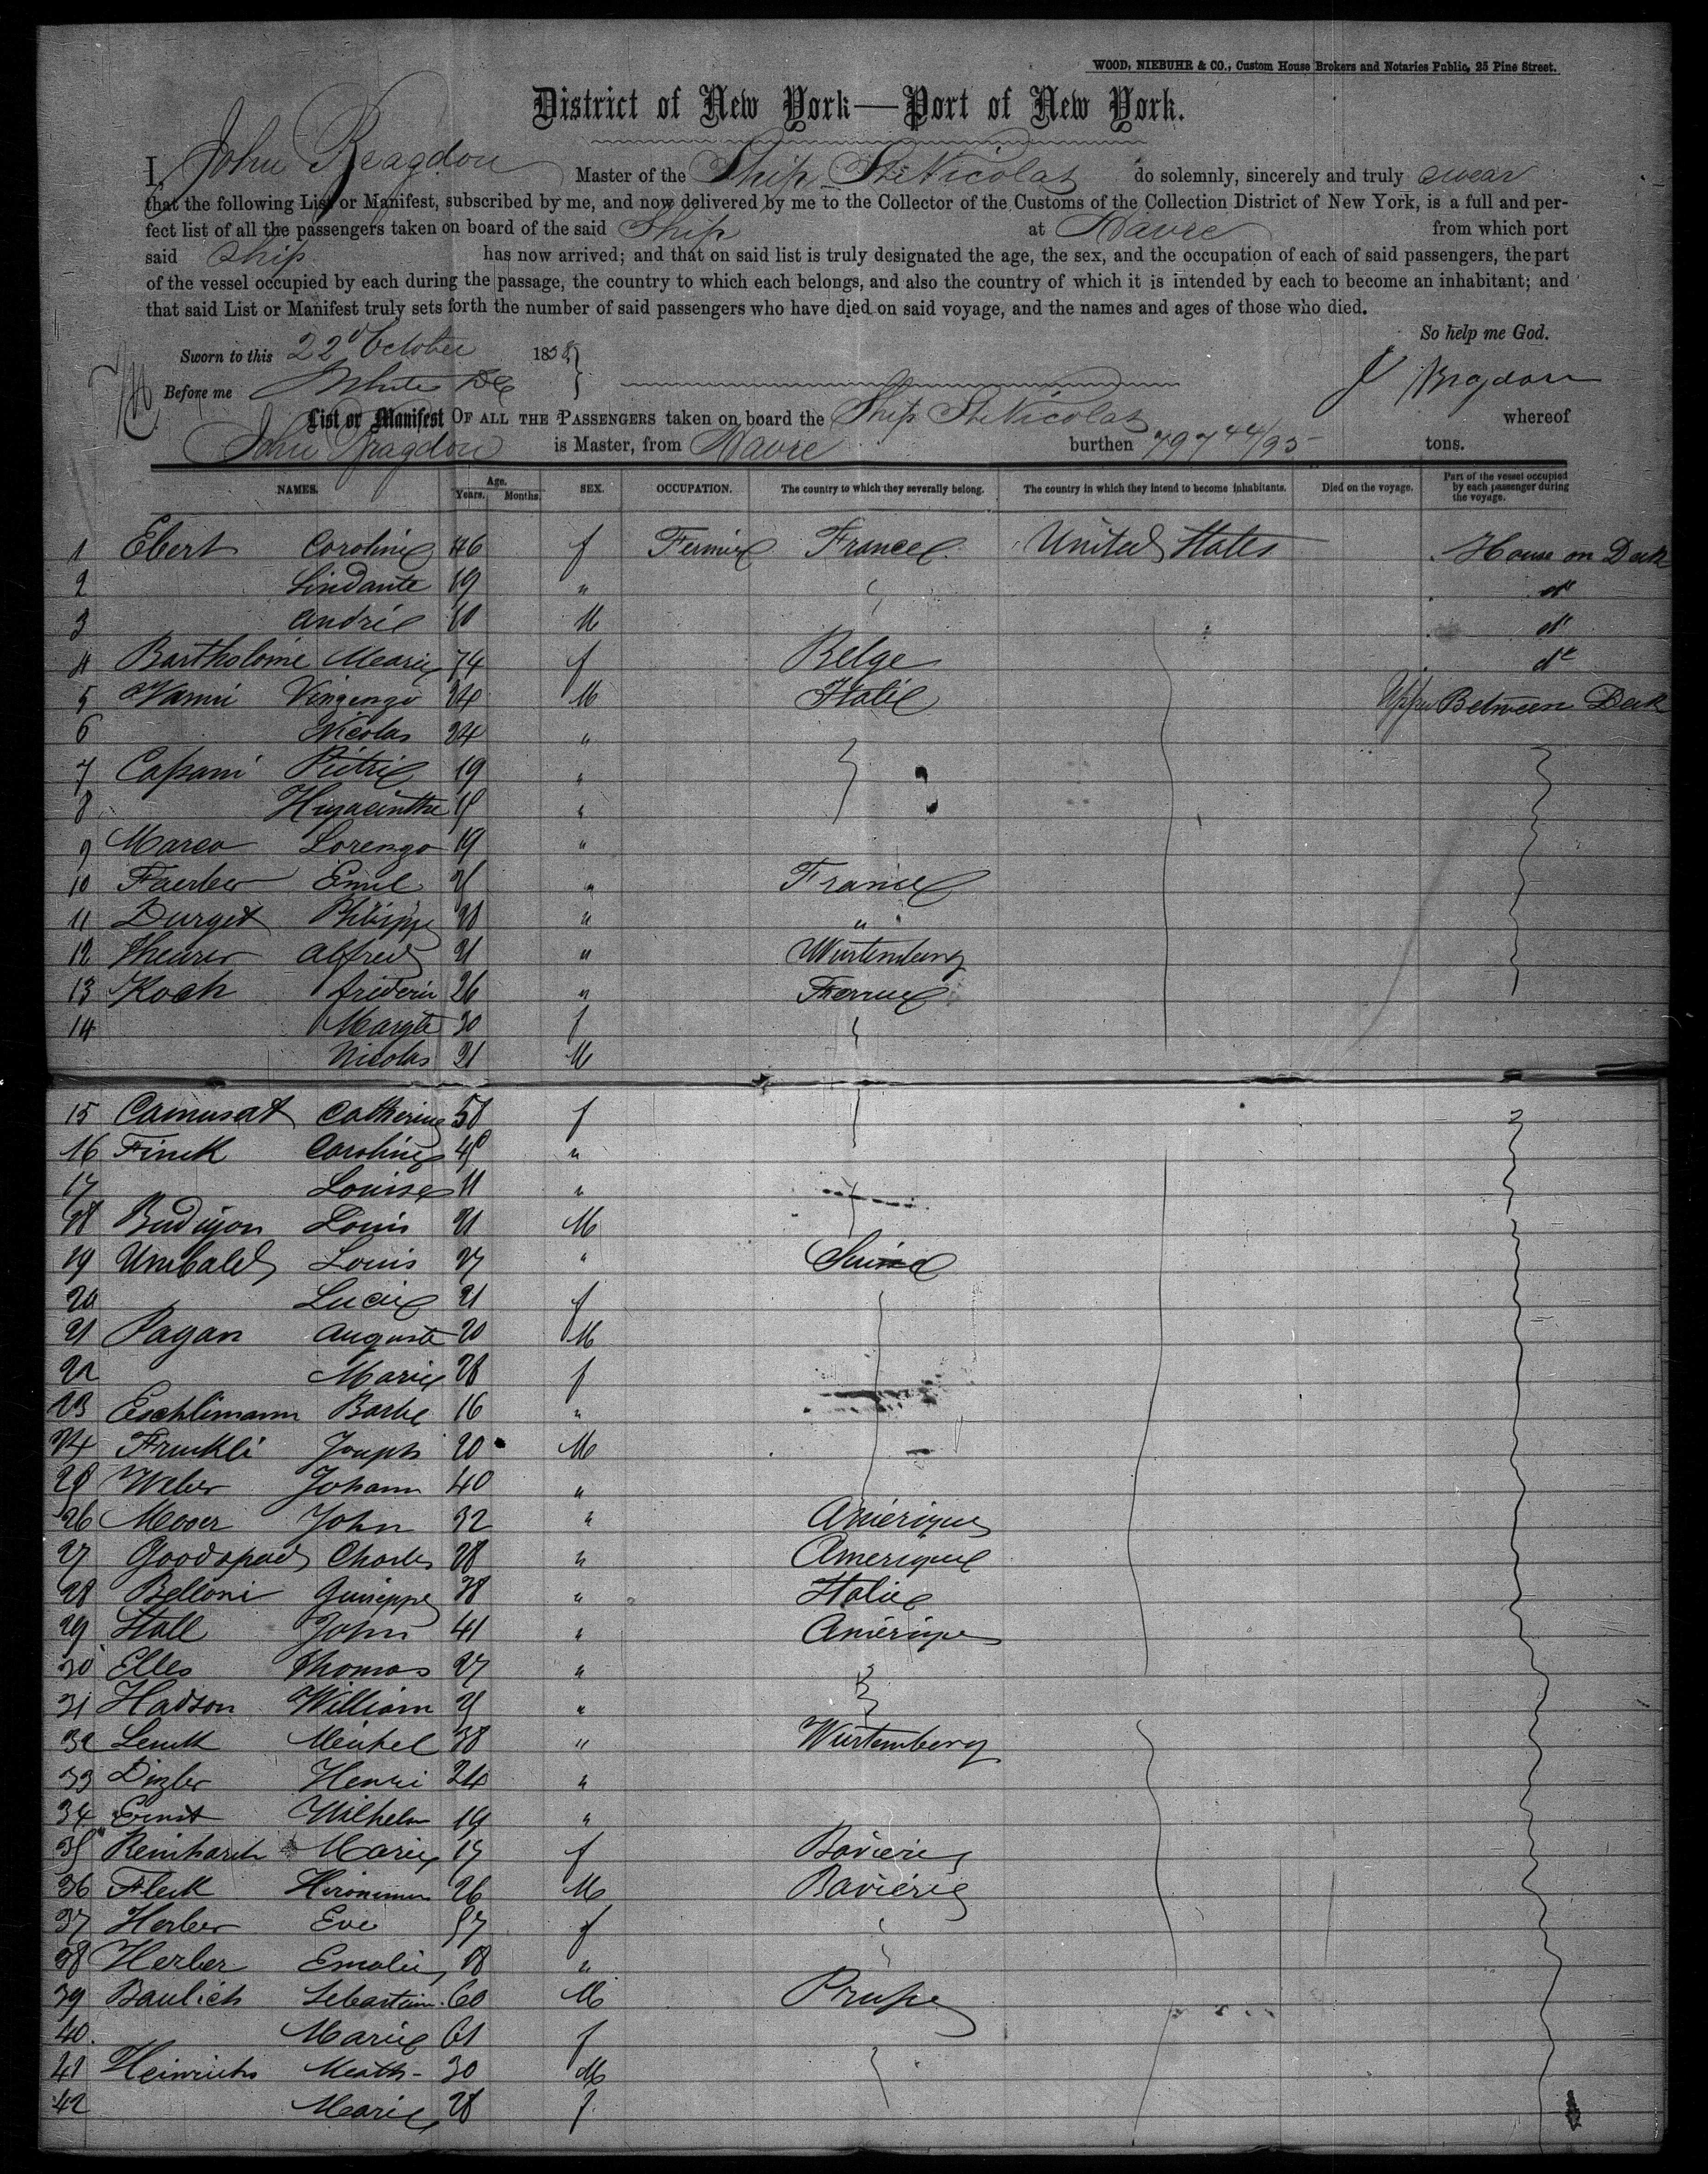 WOOD, NIEBUHR & CO., Custom House Brokers and Notaries Public, 25 Pine Street.
District of New York—Port of New York.
I, John Bragdon Master of the Ship St Nicolas do solemnly, sincerely and truly swear
that the following List or Manifest, subscribed by me, and now delivered by me to the Collector of the Customs of the Collection District of New York, is a full and per-
fect list of all the passengers taken on board of the said Ship at Havre from which port
said Ship has now arrived; and that on said list is truly designated the age, the sex, and the occupation of each of said passengers, the part
of the vessel occupied by each during the passage, the country to which each belongs, and also the country of which it is intended by each to become an inhabitant; and
that said List or Manifest truly sets forth the number of said passengers who have died on said voyage, and the names and ages of those who died.
So help me God.
Sworn to this 22d October 1858
Before me White DC J Bragdon
List or Manifest OF ALL THE PASSENGERS taken on board the Ship St Nicolas whereof
John Bragdon is Master, from Havre burthen 797 44/95 tons.
NAMES. Age. Years. Months. SEX. OCCUPATION. The country to which they severally belong. The country in which they intend to become inhabitants. Died on the voyage. Part of the vessel occupied by each passenger during the voyage.
1 Ebert Caroline 46 f France United States House on Deck
2 19 " do
3 André 10 M do
4 Bartholomé Marie 74 f Belge do
5 Vanni Vinzenzo 34 M Italie Upper Between Deck
6 Nicolas 24 "
7 Capani Pietrie 19 "
8 Hyacinthe "
9 Marca Lorenzo 19 "
10 Faerber Emil "  France
11 Durget Philippe "  "
12 Theurer Alfred 21 " Wurtemberg
13 Koch frideric 26 "
14 Margte 30 f
Nicolas 21 M
15 Camusat Catherine 58 f
16 Finck Caroline "
17 Louise 11 "
18 Budijon Louis 21 M
19 Umbald Louis 27 " Suisse
20 Lucie 21 f
21 Pagan Auguste 20 M
22 Marie 28 f
23 Eschlimann Barbe 16 "
24 Joseph 20 M
25 Weber Johann 40 "
26 Mooer John 32 " Amérique
27 Goodspeed Charles 28 " Amérique
28 Belloni Guiseppe 38 " Italie
29 Stall John 41 " Amérique
30 Elles Thomas 27 "
31 Hadson William "
32 Lenck Meichel 38 " Wurtemberg
33 Dizler Henri 24 "
34 Ernst Wilhelm 19 "
35 Reinhardt Marie 17 f Bavière
36 Fleck Hironimus 26 M Bavière
37 Herber Eve 57 f
38 Herber Emalie 18 "
39 Baulich Sebastien 60 M Prusse
40. Marie 61 f
41 Heinrichs Math- 30 M
42 Marie 28 f